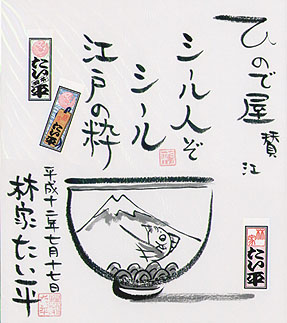 ひので屋
賛江
シール人ぞ
シール
江戸の粋
平成十二年七月十七日
林家たい平
たい平
たい平
たい平